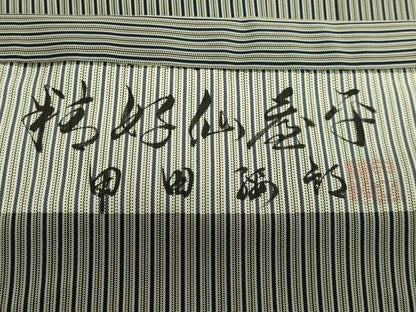 精好仙台平
甲田綏郎